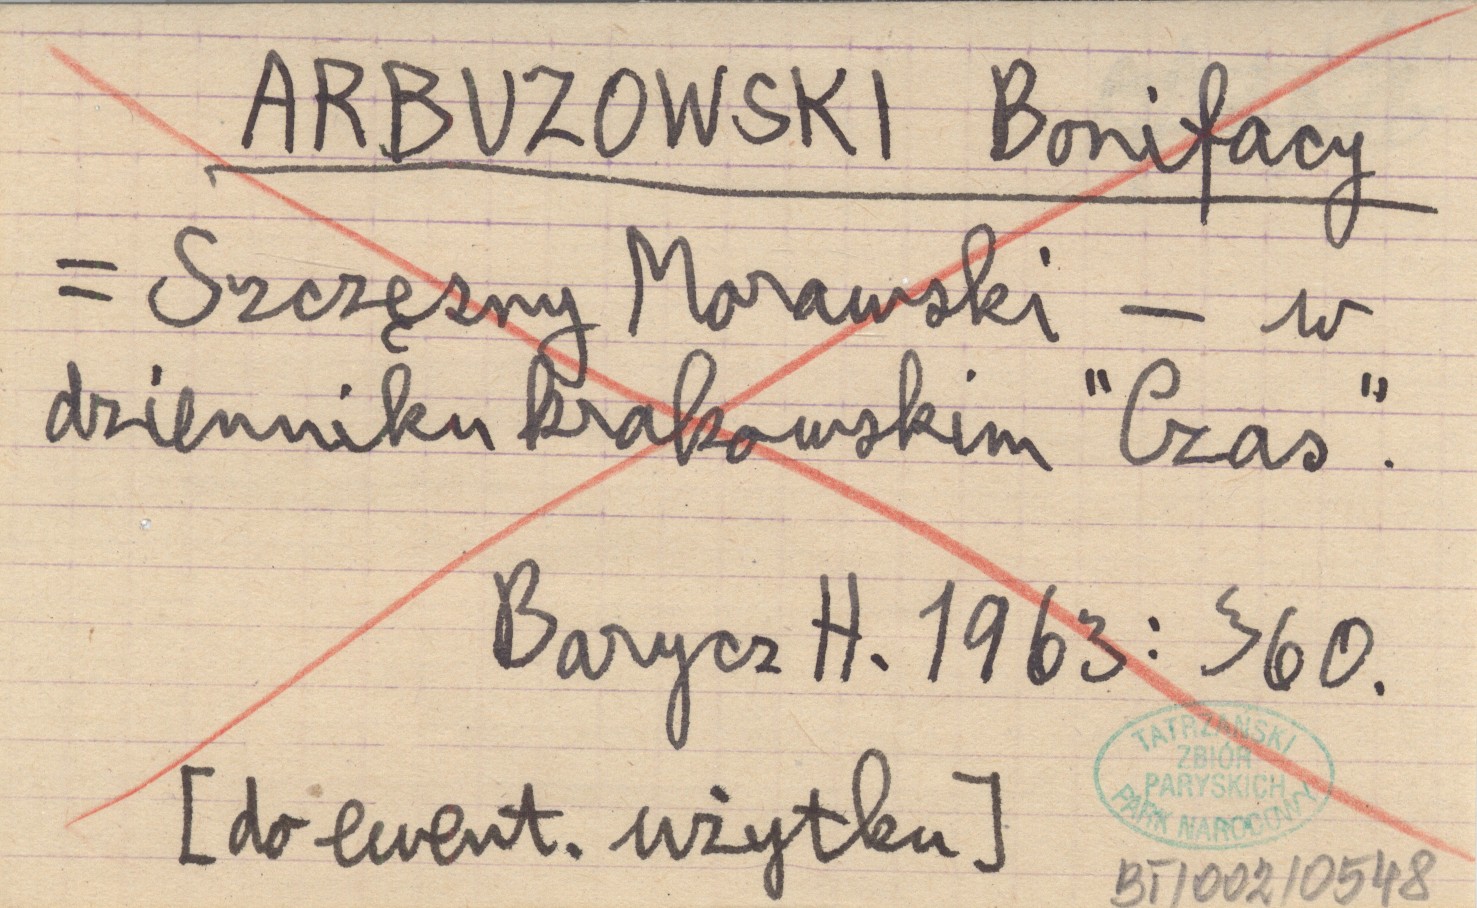 ARBUZOWSKI Bonifacy
= Szczęsny Morawski – w
dzienniku krakowskim "Czas".
Barycz H. 1963: 360.
[do ewent. użytku]
TATRZAŃSKI
ZBIÓR
PARYSKICH
PARK NARODOWY
BT/002/0548